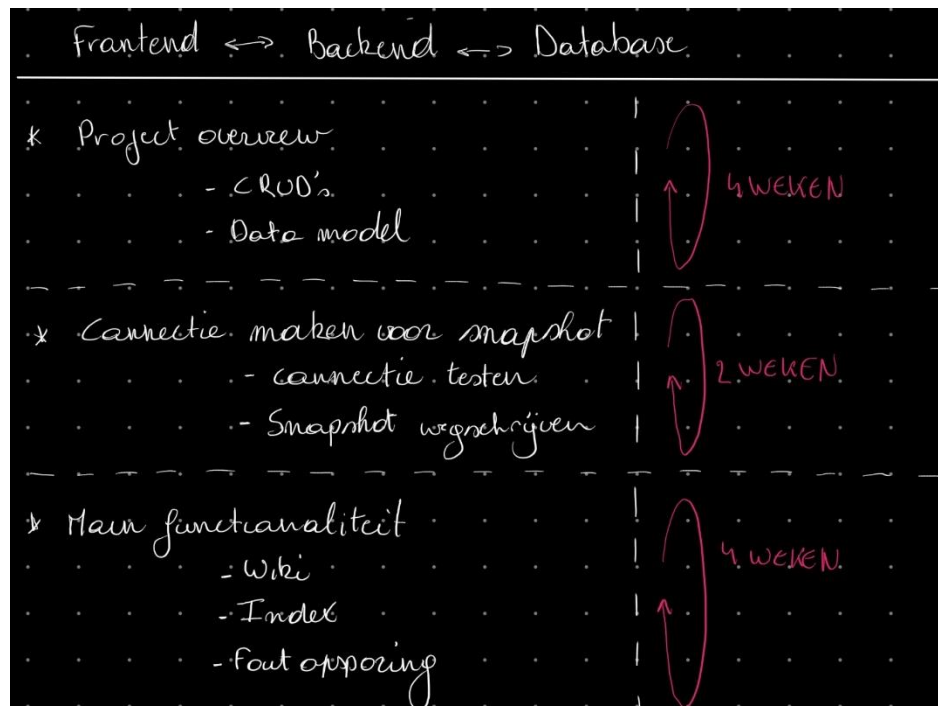 Frontend <-> Backend <-> Database
* Project overview
- CRUD's
- Data model
4 WEKEN
* Connectie maken voor snapshot
- connectie testen
- Snapshot wegschrijven
2 WEKEN
* Main functionaliteit
- Wiki
- Index
- Fout opsporing
4 WEKEN